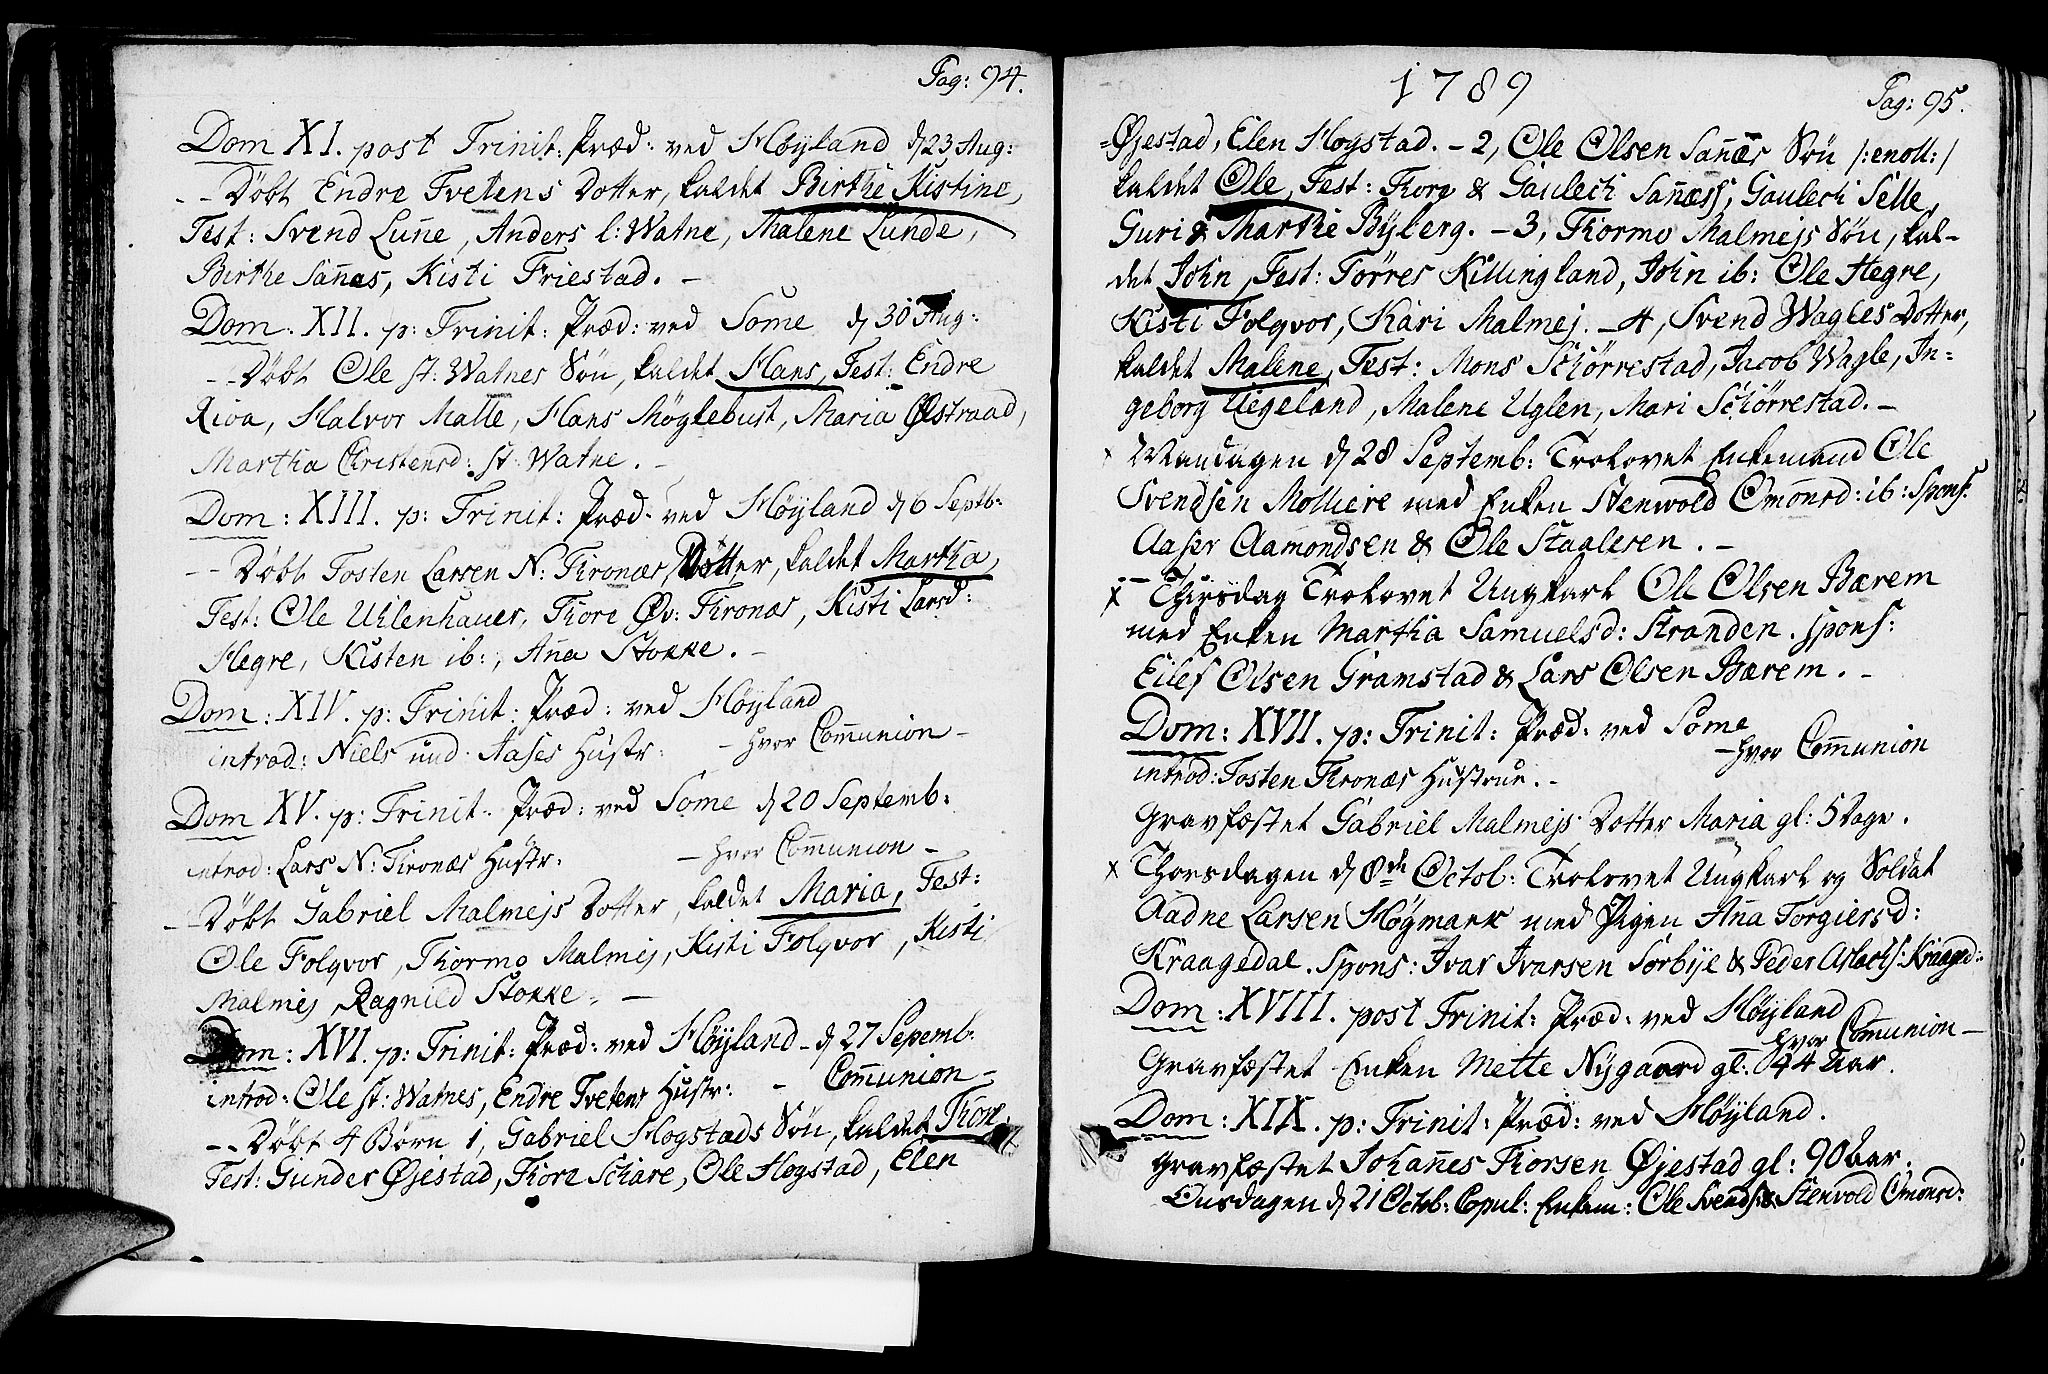 Pag: 94.
Dom XI. post Trinit: Præd: ved Høyland d 23 Aug:
-- Døbt Endre Tvetens Dotter, kaldet Birthe Kistine,
Test: Svend Luñe, Anders l: Watne, Malene Lunde,
Birthe Sañæs, Kisti Friestad. -
Dom: XII. p: Trinit: Præd: ved Some d 30 Aug:
-- Døbt Ole st: Watnes Søn, kaldet Hans, Test: Endre
Rioa, Halvor Malle, Hans Møglebust, Maria Østraad,
Martha Christensd: st: Watne. -
Dom: XIII. p: Trinit: Præd: ved Høyland d 6 Septb:
-- Døbt Tosten Larsen N: Thronæs Dotter, kaldet Martha,
Test: Ole Uhlenhauer, Thore Øv: Thronæs, Kisti Larsd:
Hegre, Kisten ib:, Aña Stokke. -
Dom: XIV. p: Trinit: Præd: ved Høyland
introd: Niels und: Aases Hustr: - hvor Com̄union -
Dom XV. p: Trinit: Præd: ved Some d 20 Septemb:
introd: Lars N: Thronæs Hustr: - hvor Com̄union -
-- Døbt Gabriel Malmejs Dotter, kaldet Maria, Test:
Ole Folqvor, Thormo Malmej, Kisti Folqvor, Kisti
Malmej Ragnild Stokke. -
Dom: XVI. p: Trinit: Præd: ved Høyland - d 27 Sepemb:
introd: Ole st: Watnes, Endre Tvetens Hustr: - Com̄union -
-- Døbt 4 Børn 1, Gabriel Hogstads Søn, kaldet Thore
Test: Gunder Øjestad, Thore Schare, Ole Hogstad, Elen
1789
Pag: 95.
=Øjestad, Elen Hogstad. - 2, Ole Olsen Sañæs Søn /: enoll: /
kaldet Ole, Test: Thore & Gaulech Sañæss, Gaulech Selle,
Guri & Marthe Bÿberg. - 3, Thormo Malmejs Søn, kal-
det John, Test: Tørres Killingland, John ib: Ole Hegre,
Kisti Folqvor, Kari Malmej. - 4, Svend Wagles Dotter,
kaldet Malene, Test: Mons Schørrestad, Jacob Wagle, In=
geborg Uegeland, Malene Uglen, Mari Schørrestad. -
x Mandagen d 28 Septemb: Trolovet Enkemand Ole
Svendsen Molliere med Enken Stenwold Omonsd: ib: Spons:
Aaser Aamondsen & Ole Staalesen. -
x -- Thirsdag Trolovet Ungkarl Ole Olsen Bærem
med Enken Martha Samuelsd: Stranden. spons:
Eilef Olsen Gramstad & Lars Olsen Bærem. -
Dom: XVII. p: Trinit: Præd: ved Some
- hvor Com̄union
introd: Tosten Thronæs Hustrue. -
Gravfæstet Gabriel Malmejs Dotter Maria gl: 5 Dage.
x Thorsdagen d 8de Octob: Trolovet Ungkarl og Soldat
Aadne Larsen Høgmark med Pigen Aña Torgiersd:
Kraagedal. Spons: Ivar Ivarsen Sørbÿe & Peder Aslachs: Kraaged:
Dom: XVIII. post Trinit: Præd: ved Høyland
hvor Com̄union -
Gravfæstet Enken Mette Nÿgaard gl: 44 Aar.
Dom: XIX. p: Trinit: Præd: ved Høyland.
Gravfæstet Johañes Thorsen Øjestad gl: 90 Aar.
Onsdagen d 21 Octob: Copul: Enkem: Ole Svends: & Stenvold Omonsd: